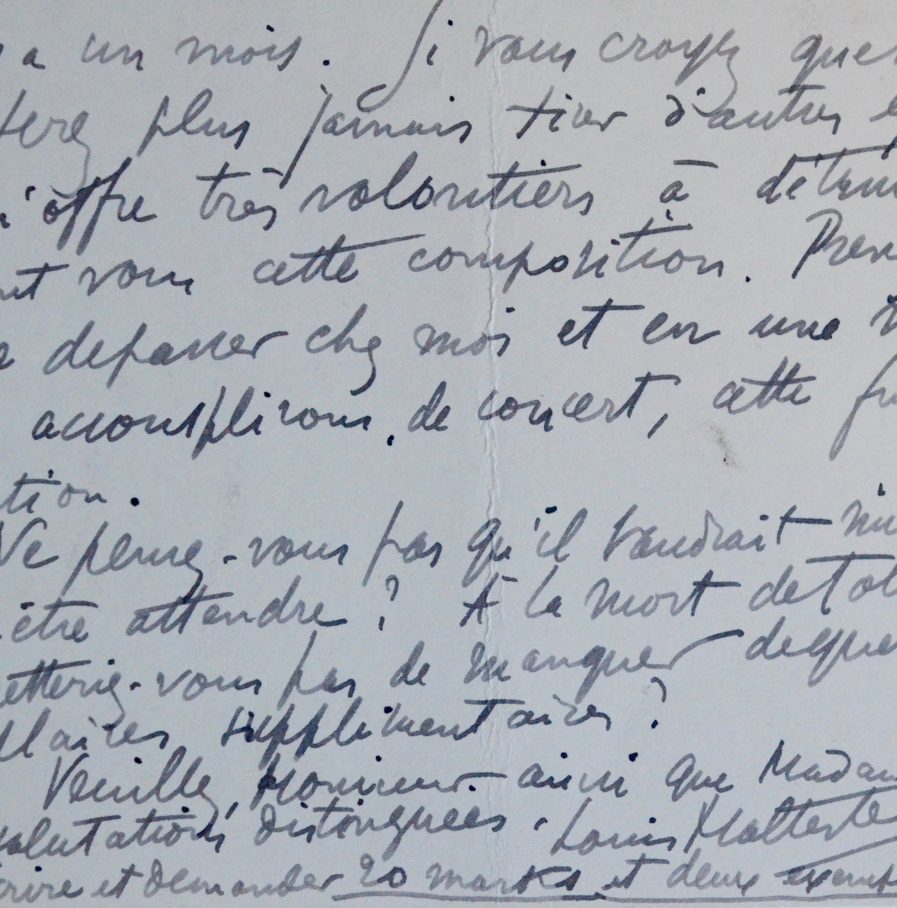 a un mois. Si vous croyez que
terez plus jamais tirer d'autres e
m'offre très volontiers à détrui
nt vous cette composition. Pren
e depasser chez moi et en une
accomplirons, de concert, cette fu
tion.
Ne pensez-vous pas qu'il vaudrait mi
-être attendre? À la mort de Tol
etteriez-vous pas de manquer de que
plaires supplimentaires?
Veuillez, Monsieur ainsi que Madam
salutations distinguées. Louis Malteste
crire et demander 20 marks et deux exemp